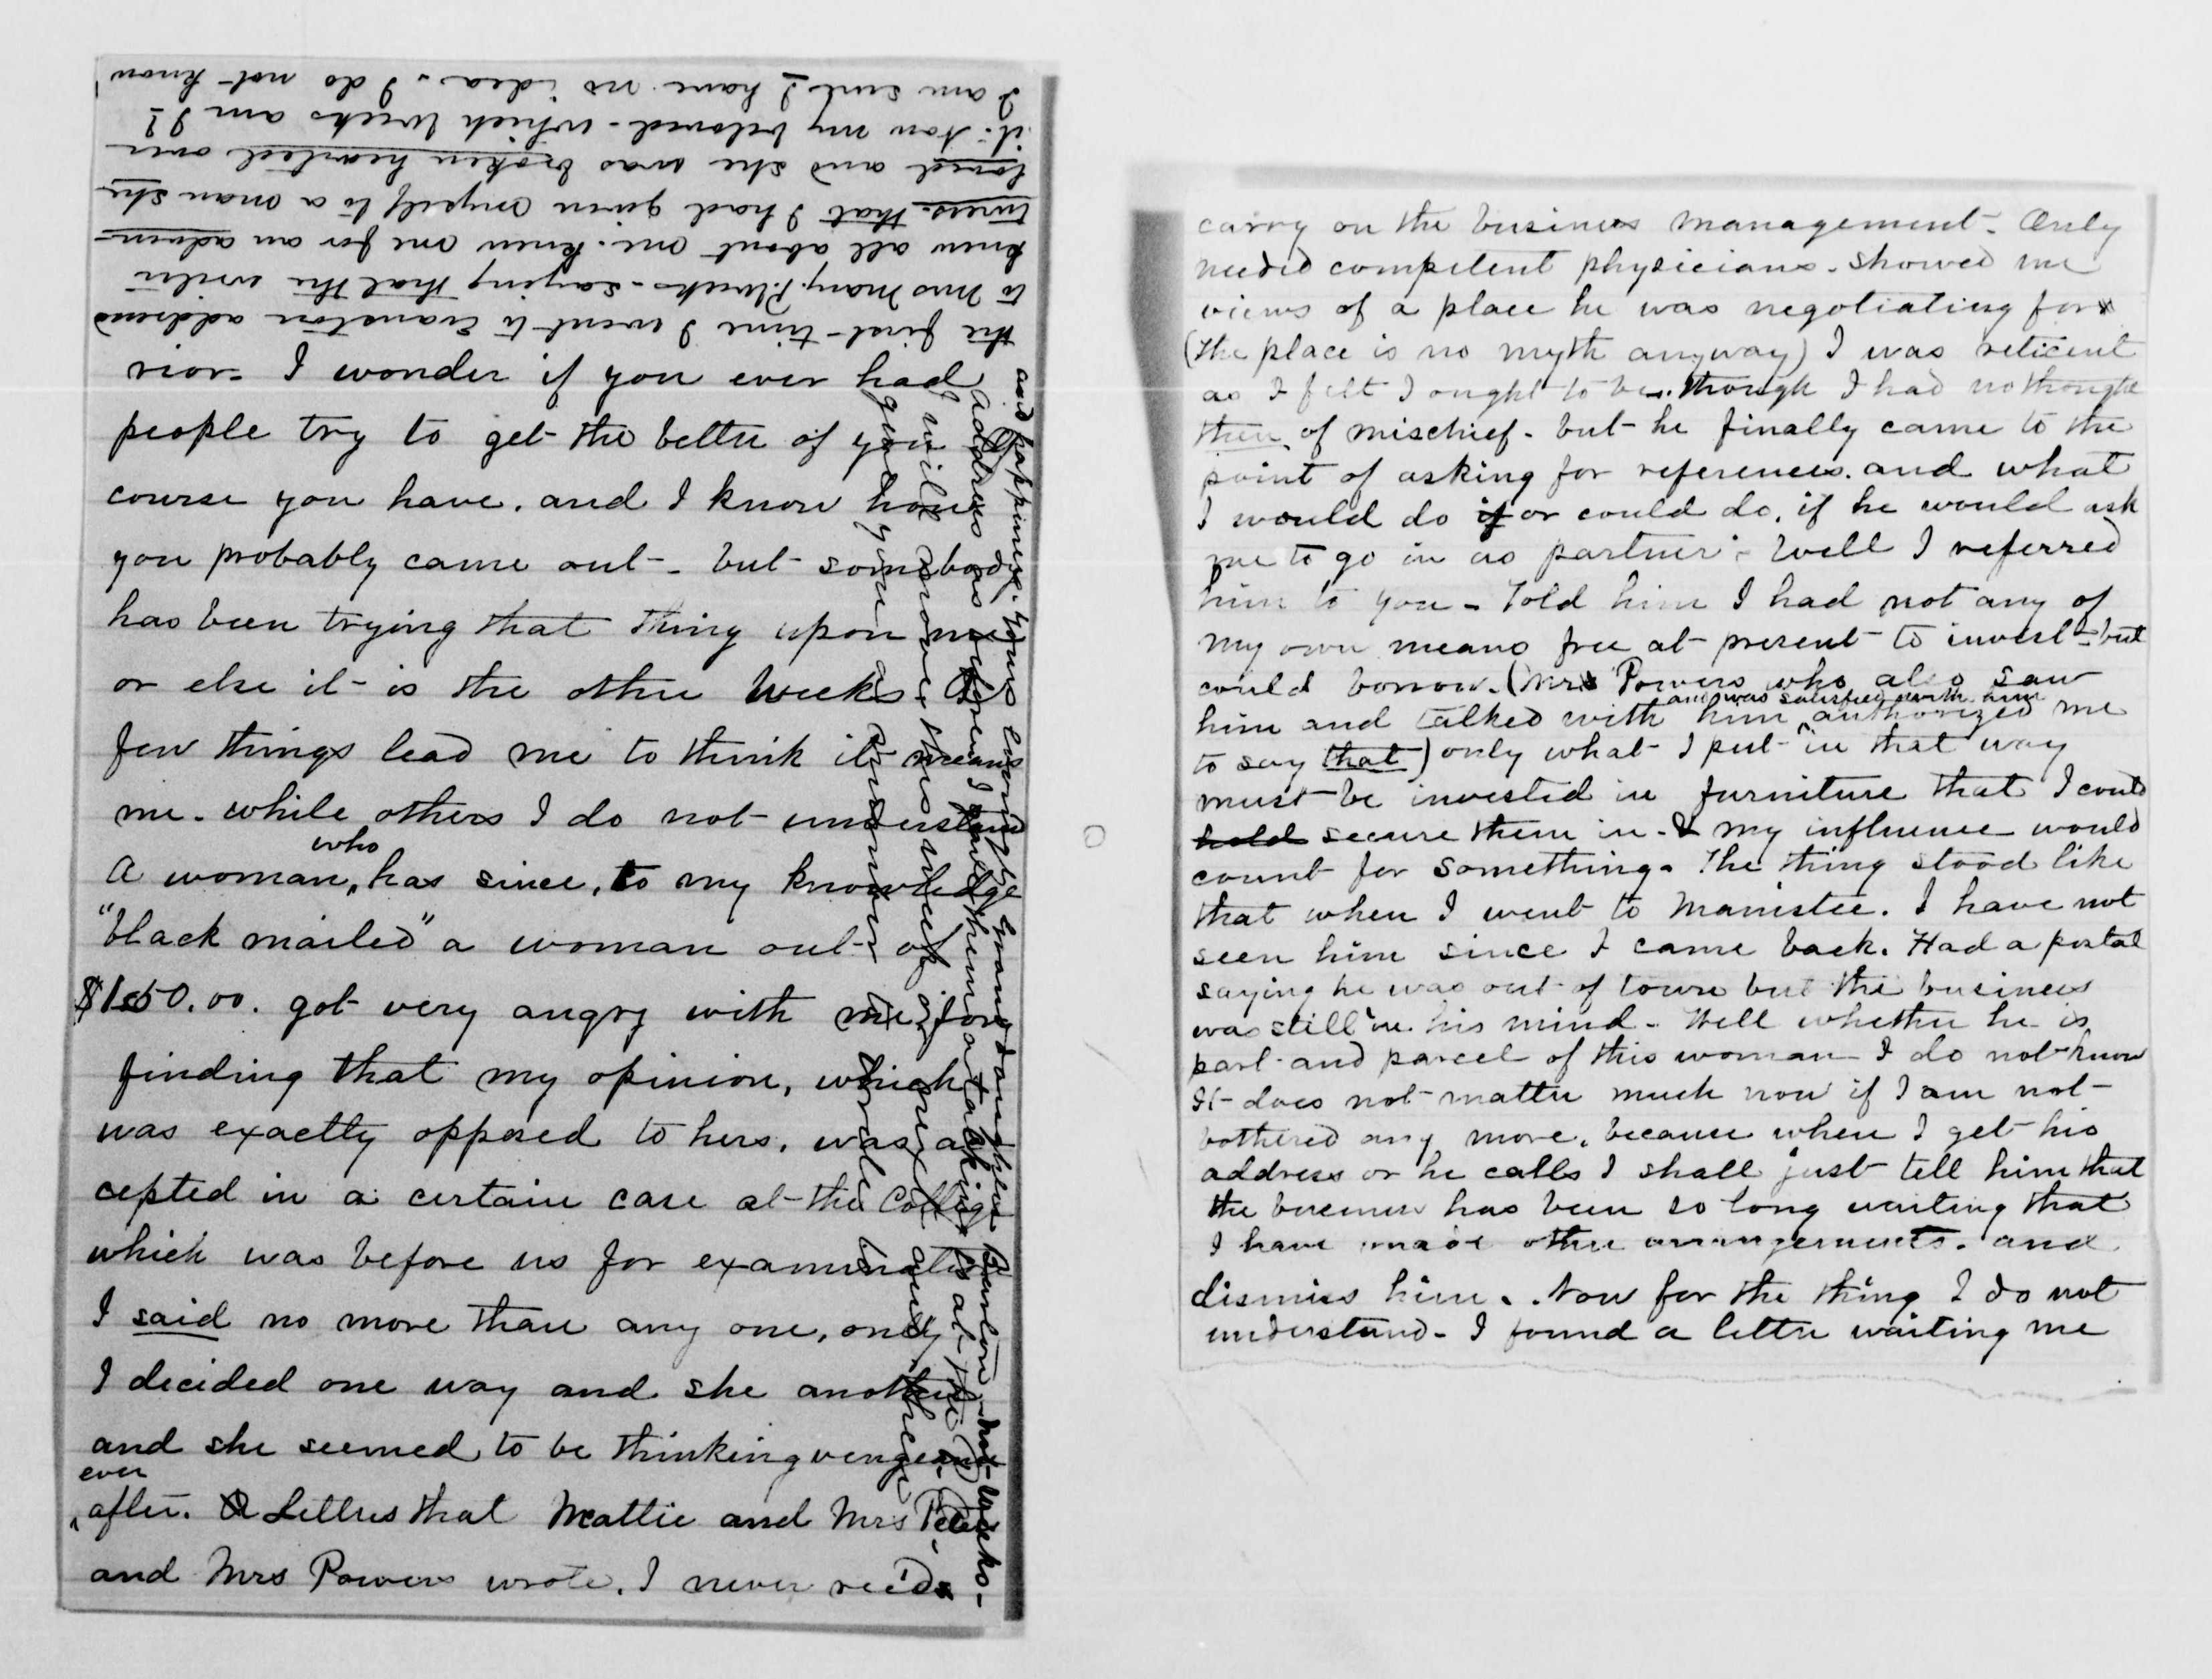 rior - I wonder if you ever had
people try to get the better of you Of
course you have. and I know how
you probably came out - but somebody
has been trying that thing upon me
or else it is the other Weeks A
few things lead me to think it means
me. while others I do not understand
A woman, who has since, to my knowledge
"black mailed" a woman out of
$150.00. got very angry with me for
finding that my opinion, which
was exactly opposed to hers, was ac
cepted in a certain case at the College
which was before us for examination
I said no more than any one, only
I decided one way and she another
and she seemed to be thinking vengeance
ever after. Letters that Mattie and Mrs Peters
and Mrs Powers wrote, I never rec'd
the first time I went to Evanston address
to Mrs Mary P. Weeks - saying that the writer
knew all about me. knew me for an adven-
turess. that I had given myself to a man she
loved and she was broken hearted over
it. Now my beloved - which Weeks am I?
I am sure I have no idea. I do not know
I will answer this week if
address as before I gave them
and happiness. Yours lovingly Granddaughter Burleson - not Weeks -
carry on the business management - Only
needed competent physicians. showed me
views of a place he was negotiating for
(the place is no myth anyway) I was reticent
as I felt I ought to be. though I had no thought
then, of mischief - but he finally came to the
point of asking for references. and what
I would do if or could do, if he would ask
me to go in as partner - Well I referred
him to you - Told him I had not any of
my own means free at present to invest - but
could borrow. (Mrs Powers who also saw
him and talked with him and was satisfied with him authorized me
to say that) only what I put in that way
must be invested in furniture that I could
hold secure them in - & my influence would
count for something. The thing stood like
that when I went to Manistee. I have not
seen him since I came back. Had a postal
saying he was out of town but the business
was still in his mind - Well whether he is
part and parcel of this woman I do not know
It does not matter much now if I am not
bothered any more, because when I get his
address or he calls I shall just tell him that
the business has been so long waiting that
I have made other arrangements. and
dismiss him. Now for the thing I do not
understand - I found a letter waiting me